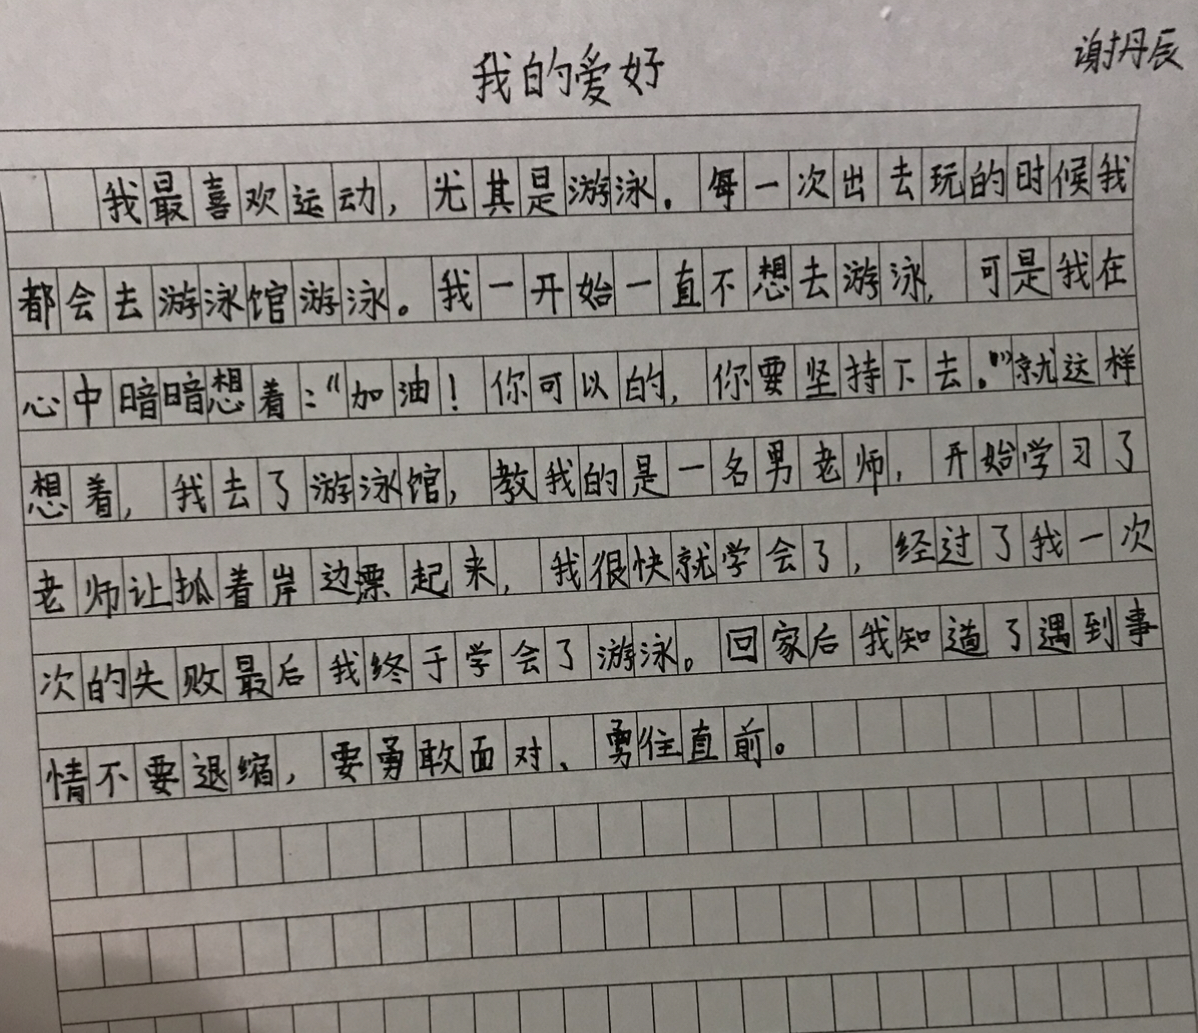 我的爱好
谢丹辰
我最喜欢运动，尤其是游泳．每一次出去玩的时候我
都会去游泳馆游泳。我一开始一直不想去游泳，可是我在
心中暗暗想着：“加油！你可以的，你要坚持下去。”就这样
想着，我去了游泳馆，教我的是一名男老师，开始学习了
老师让抓着岸边漂起来，我很快就学会了，经过了我一次
次的失败最后我终于学会了游泳。回家后我知道了遇到事
情不要退缩，要勇敢面对、勇住直前。